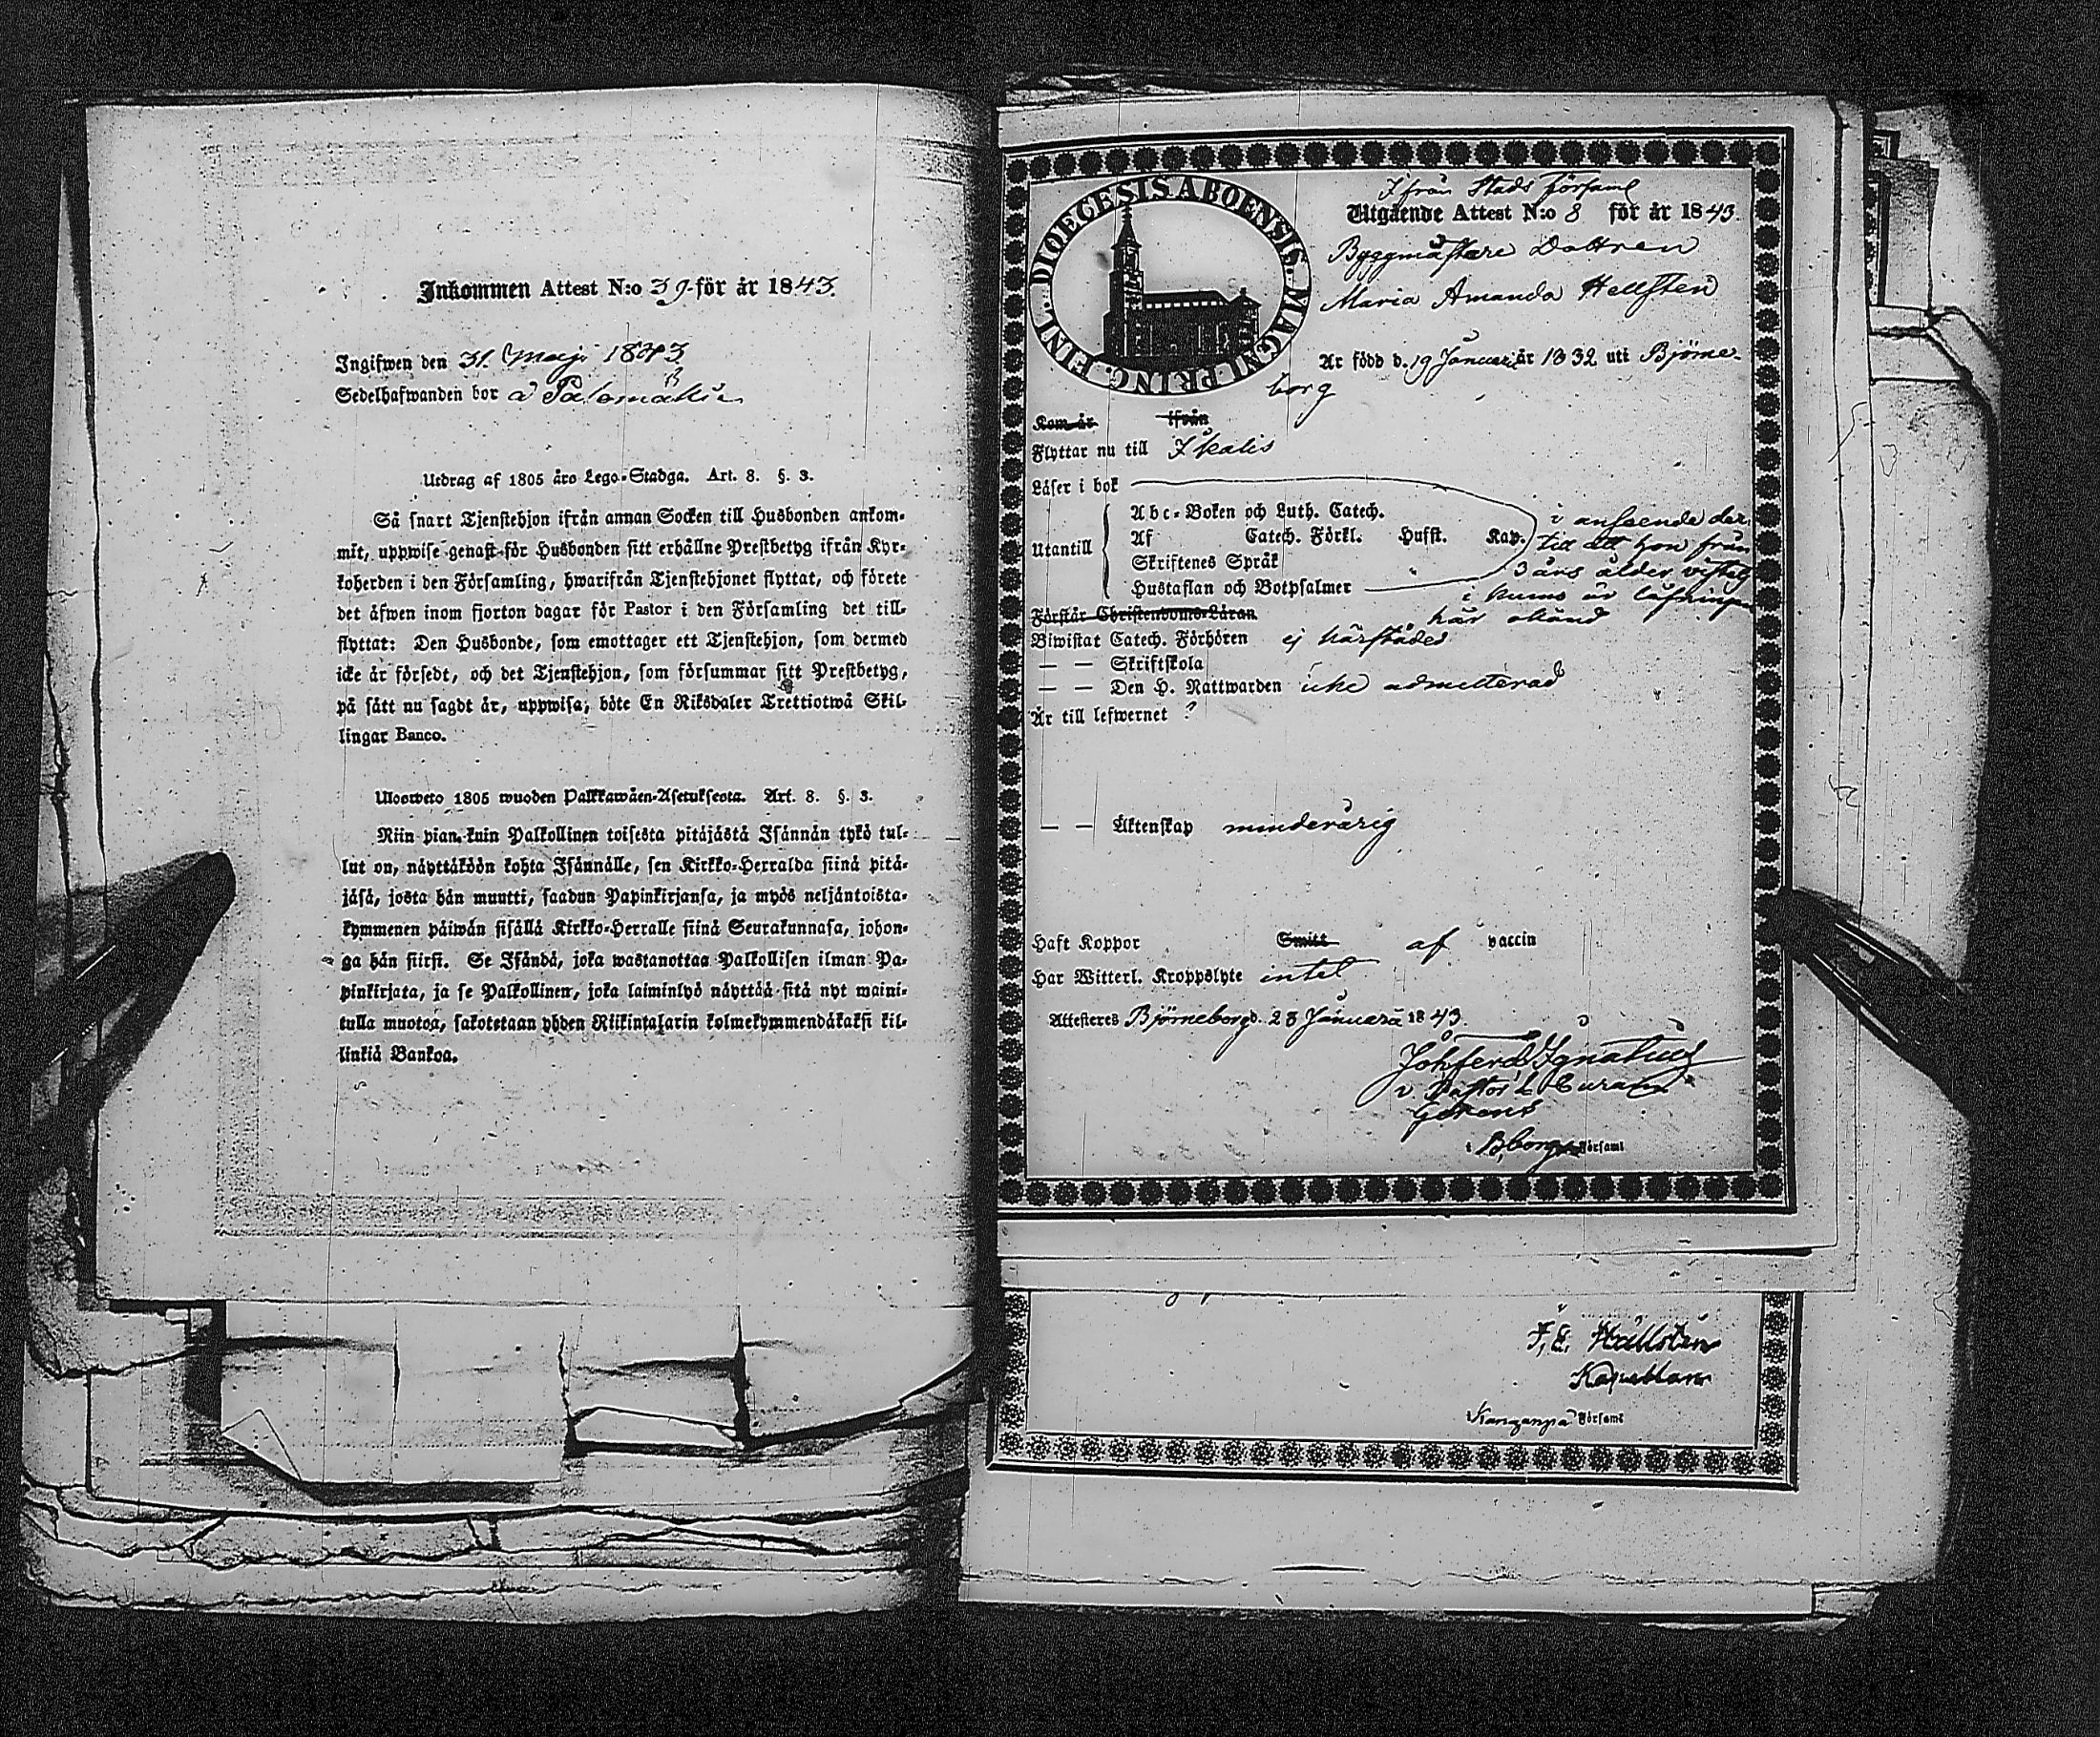 Inkommen Attest N:o 39 för år 1843.
Ingifwen den 31. Maji 1843
Sedelhafwanden bor å
Utdrag af 1805 års Lego-Stadga. Art. 8. §. 3.
Så snart Tjenstehjon ifrån annan Socken till Husbonden ankom-
mit, uppwise genast för Husbonden sitt erhållne Prestbetyg ifrån Kyr-
koherden i den Församling, hwarifrån Tjenstehjonet flyttat, och förete
det äfwen inom fjorton dagar för Pastor i den Församling det till-
flyttat: Den Husbonde, som emottager ett Tjenstehjon, som dermed
icke är försedt, och det Tjenstehjon, som försummar sitt Prestbetyg,
på sätt nu sagdt är, uppwisa, böte En Riksdaler Trettiotwå Skil-
lingar Banco.
Ulosweto 1805 wuoden Palkkawäen-Asetuksesta. Art. 8. §. 3.
Niin pian kuin Palkollinen toisesta pitäjästä Isännän tykö tul-
lut on, näyttäköön kohta Isännälle, sen Kirkko-Herralda siinä pitä-
jäsä, josta hän muutti, saadun Papinkirjansa, ja myös neljäntoista-
kymmenen päiwän sisällä Kirkko-Herralle siinä Seurakunnasa, johon-
ga hän siirsi. Se Isändä, joka wastanottaa Palkollisen ilman Pa-
pinkirjata, ja se Palkollinen, joka laiminlyö näyttää sitä nyt maini-
tulla muotoa, sakotetaan yhden Riikintalarin kolmekymmendäkaksi kil-
linkiä Bankoa.
FINL. DIOECESIS ABOENSIS. MAGNI PRINC.
Ifrån Stads Församl
Utgående Attest N:o 8 för år 1843.
Byggmästare Dottren
Maria Amanda Hellsten
Är född d. 19 Januari år 1832 uti Björne-
borg
Kom år ifrån
Flyttar nu till Ikalis
Läser i bok
Utantill
Abc-Boken och Luth. Catech.
Af Catech. Förkl. Hussst. Kap.
Skriftenes Språk
Hustaflan och Botpsalmer
i anseende der
till att hon från
3 års ålder vistats
i Kumo är läsningen
här okänd
Förstår Christendoms-Läran
Biwistat Catech. Förhören ej härstädes
— — Skriftskola
— — Den H. Nattwarden icke admitterad
Är till lefwernet ?
— — Äktenskap minderårig
Haft Koppor Smitt af vaccin
Har Witterl. Kroppslyte intet
Attesteras Björneborg d. 28 Januari 1843.
Joh Ferd Ignatius
v. Pastor & Curam
Gerens
i B.borgs Församl
F. E. Hällsten
Kapellan
i Kanganpä Församl